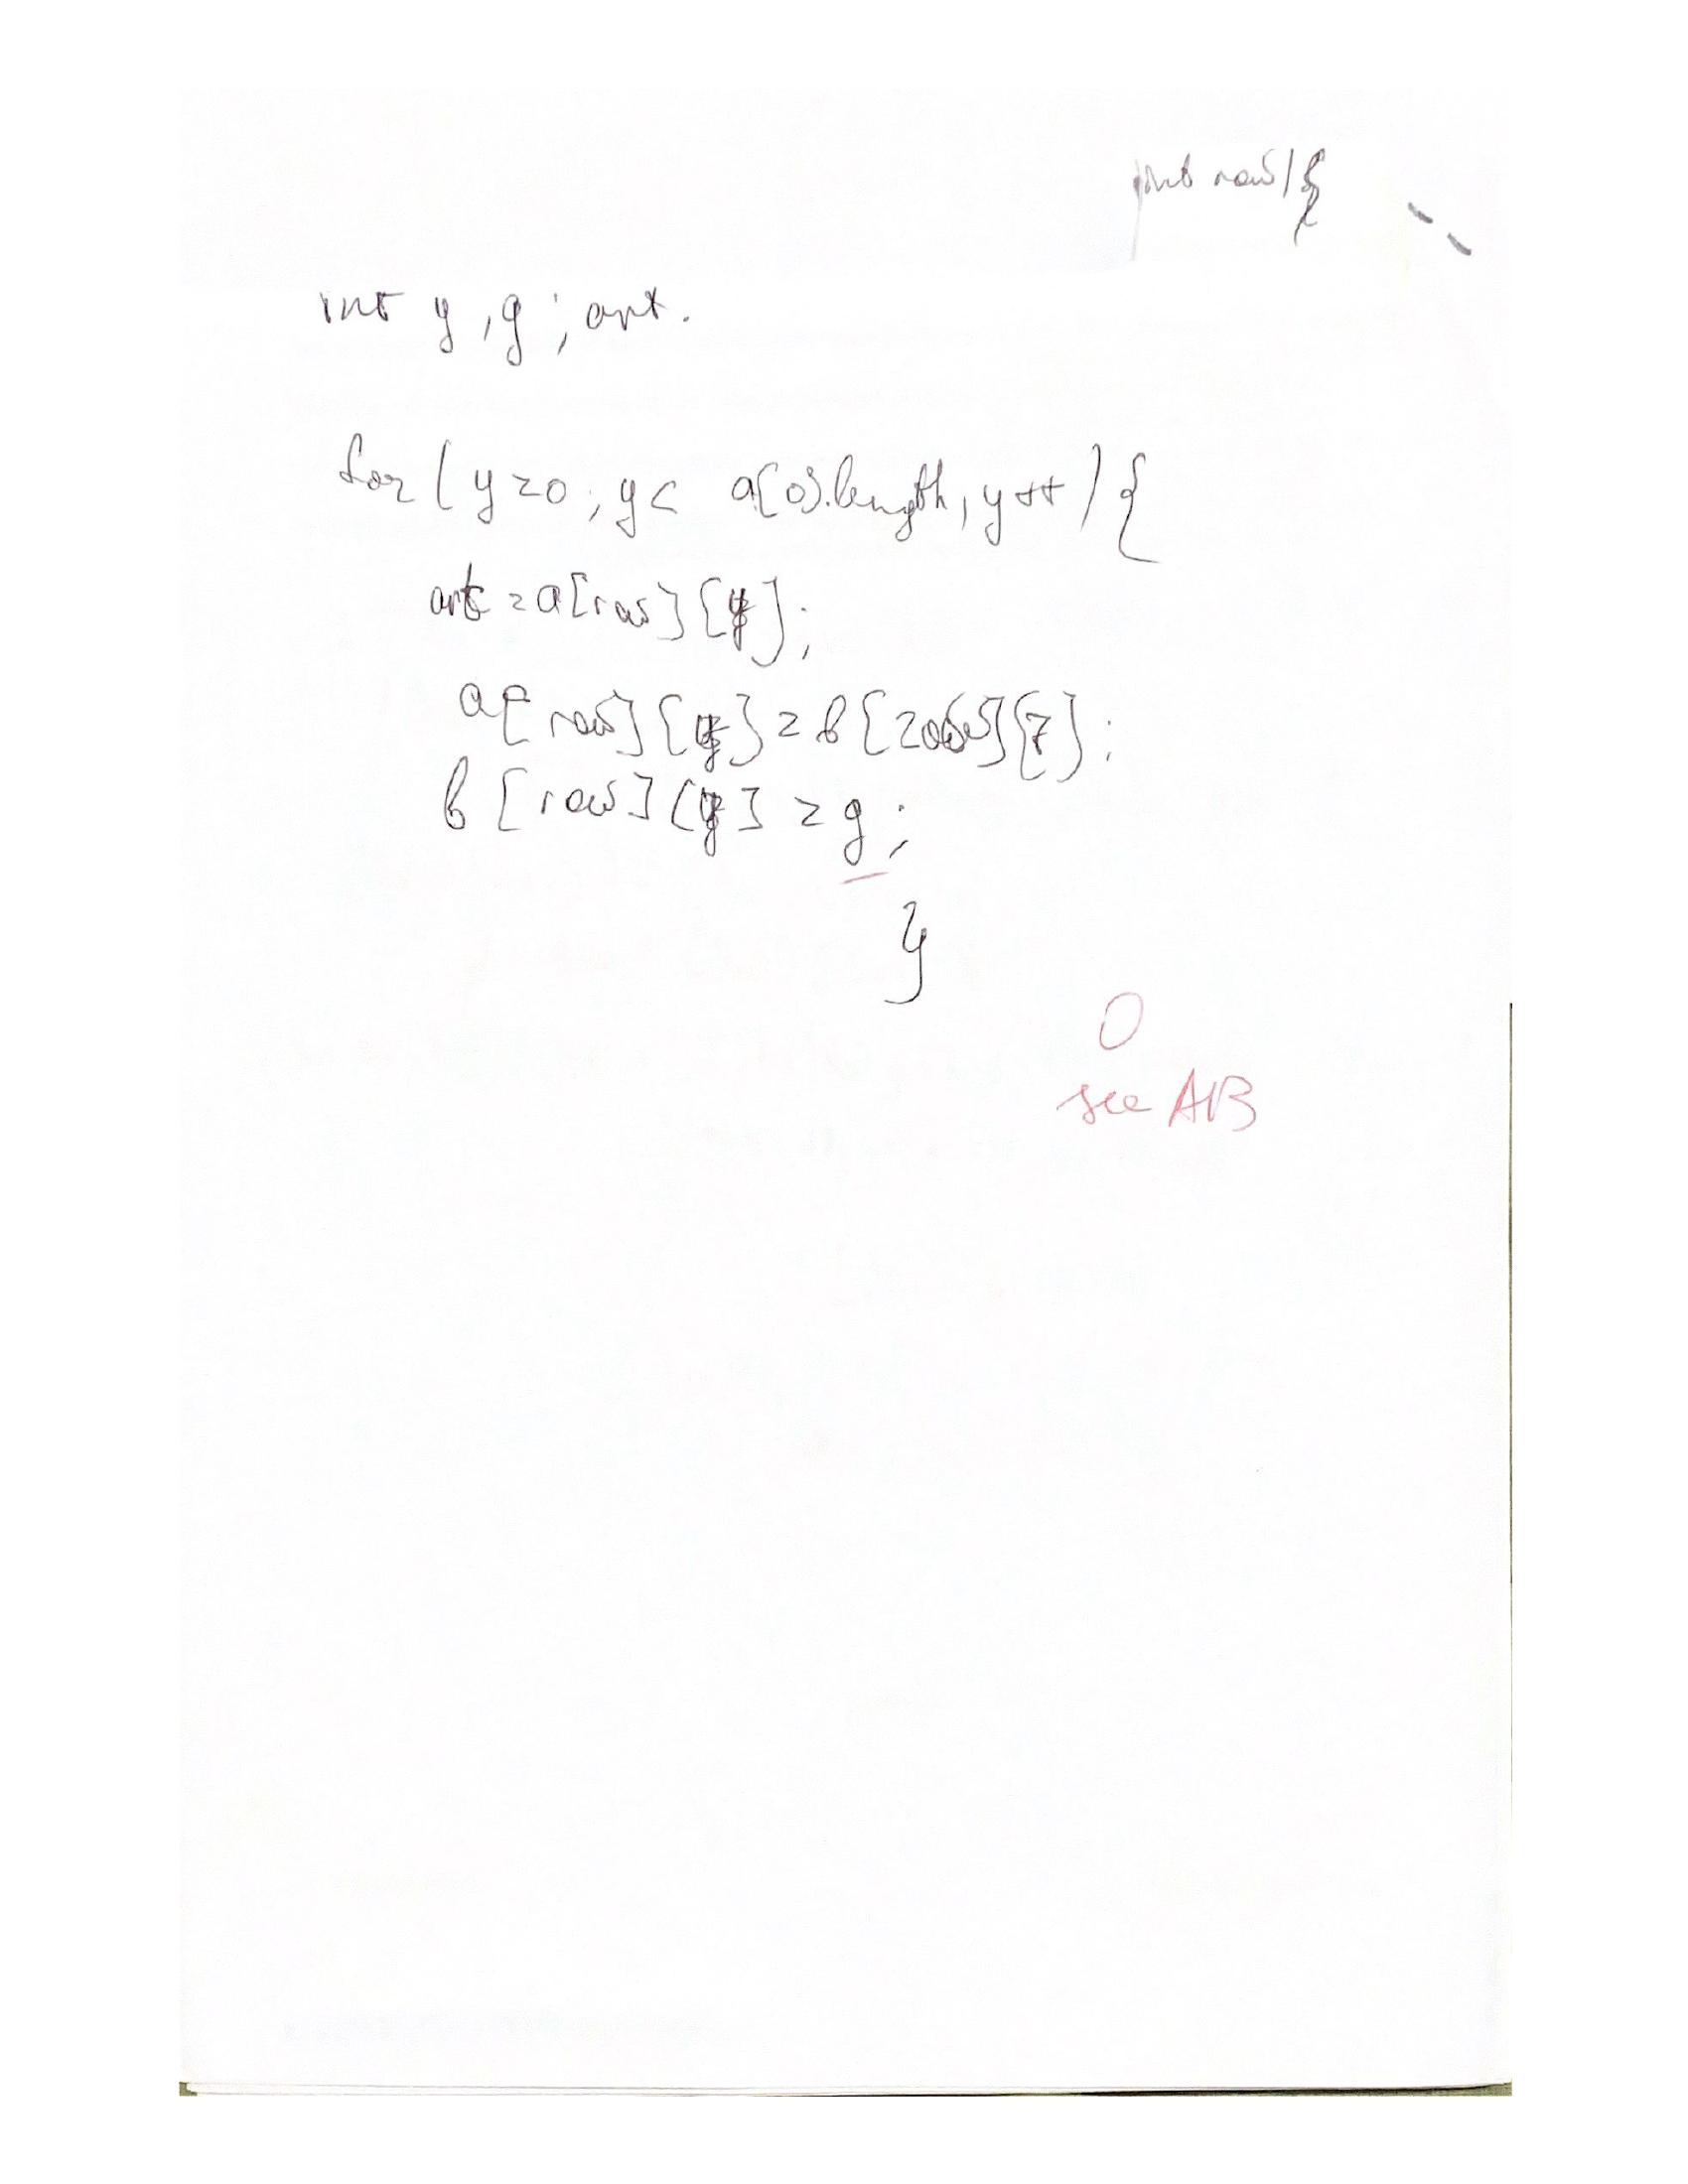 int row) {
int y, g; ant.
for (y=0; y< a[0].length, y++) {
ant = a[row][y];
a[row][y] = b[row][y];
b[row][y] = g;
}
0
see AB